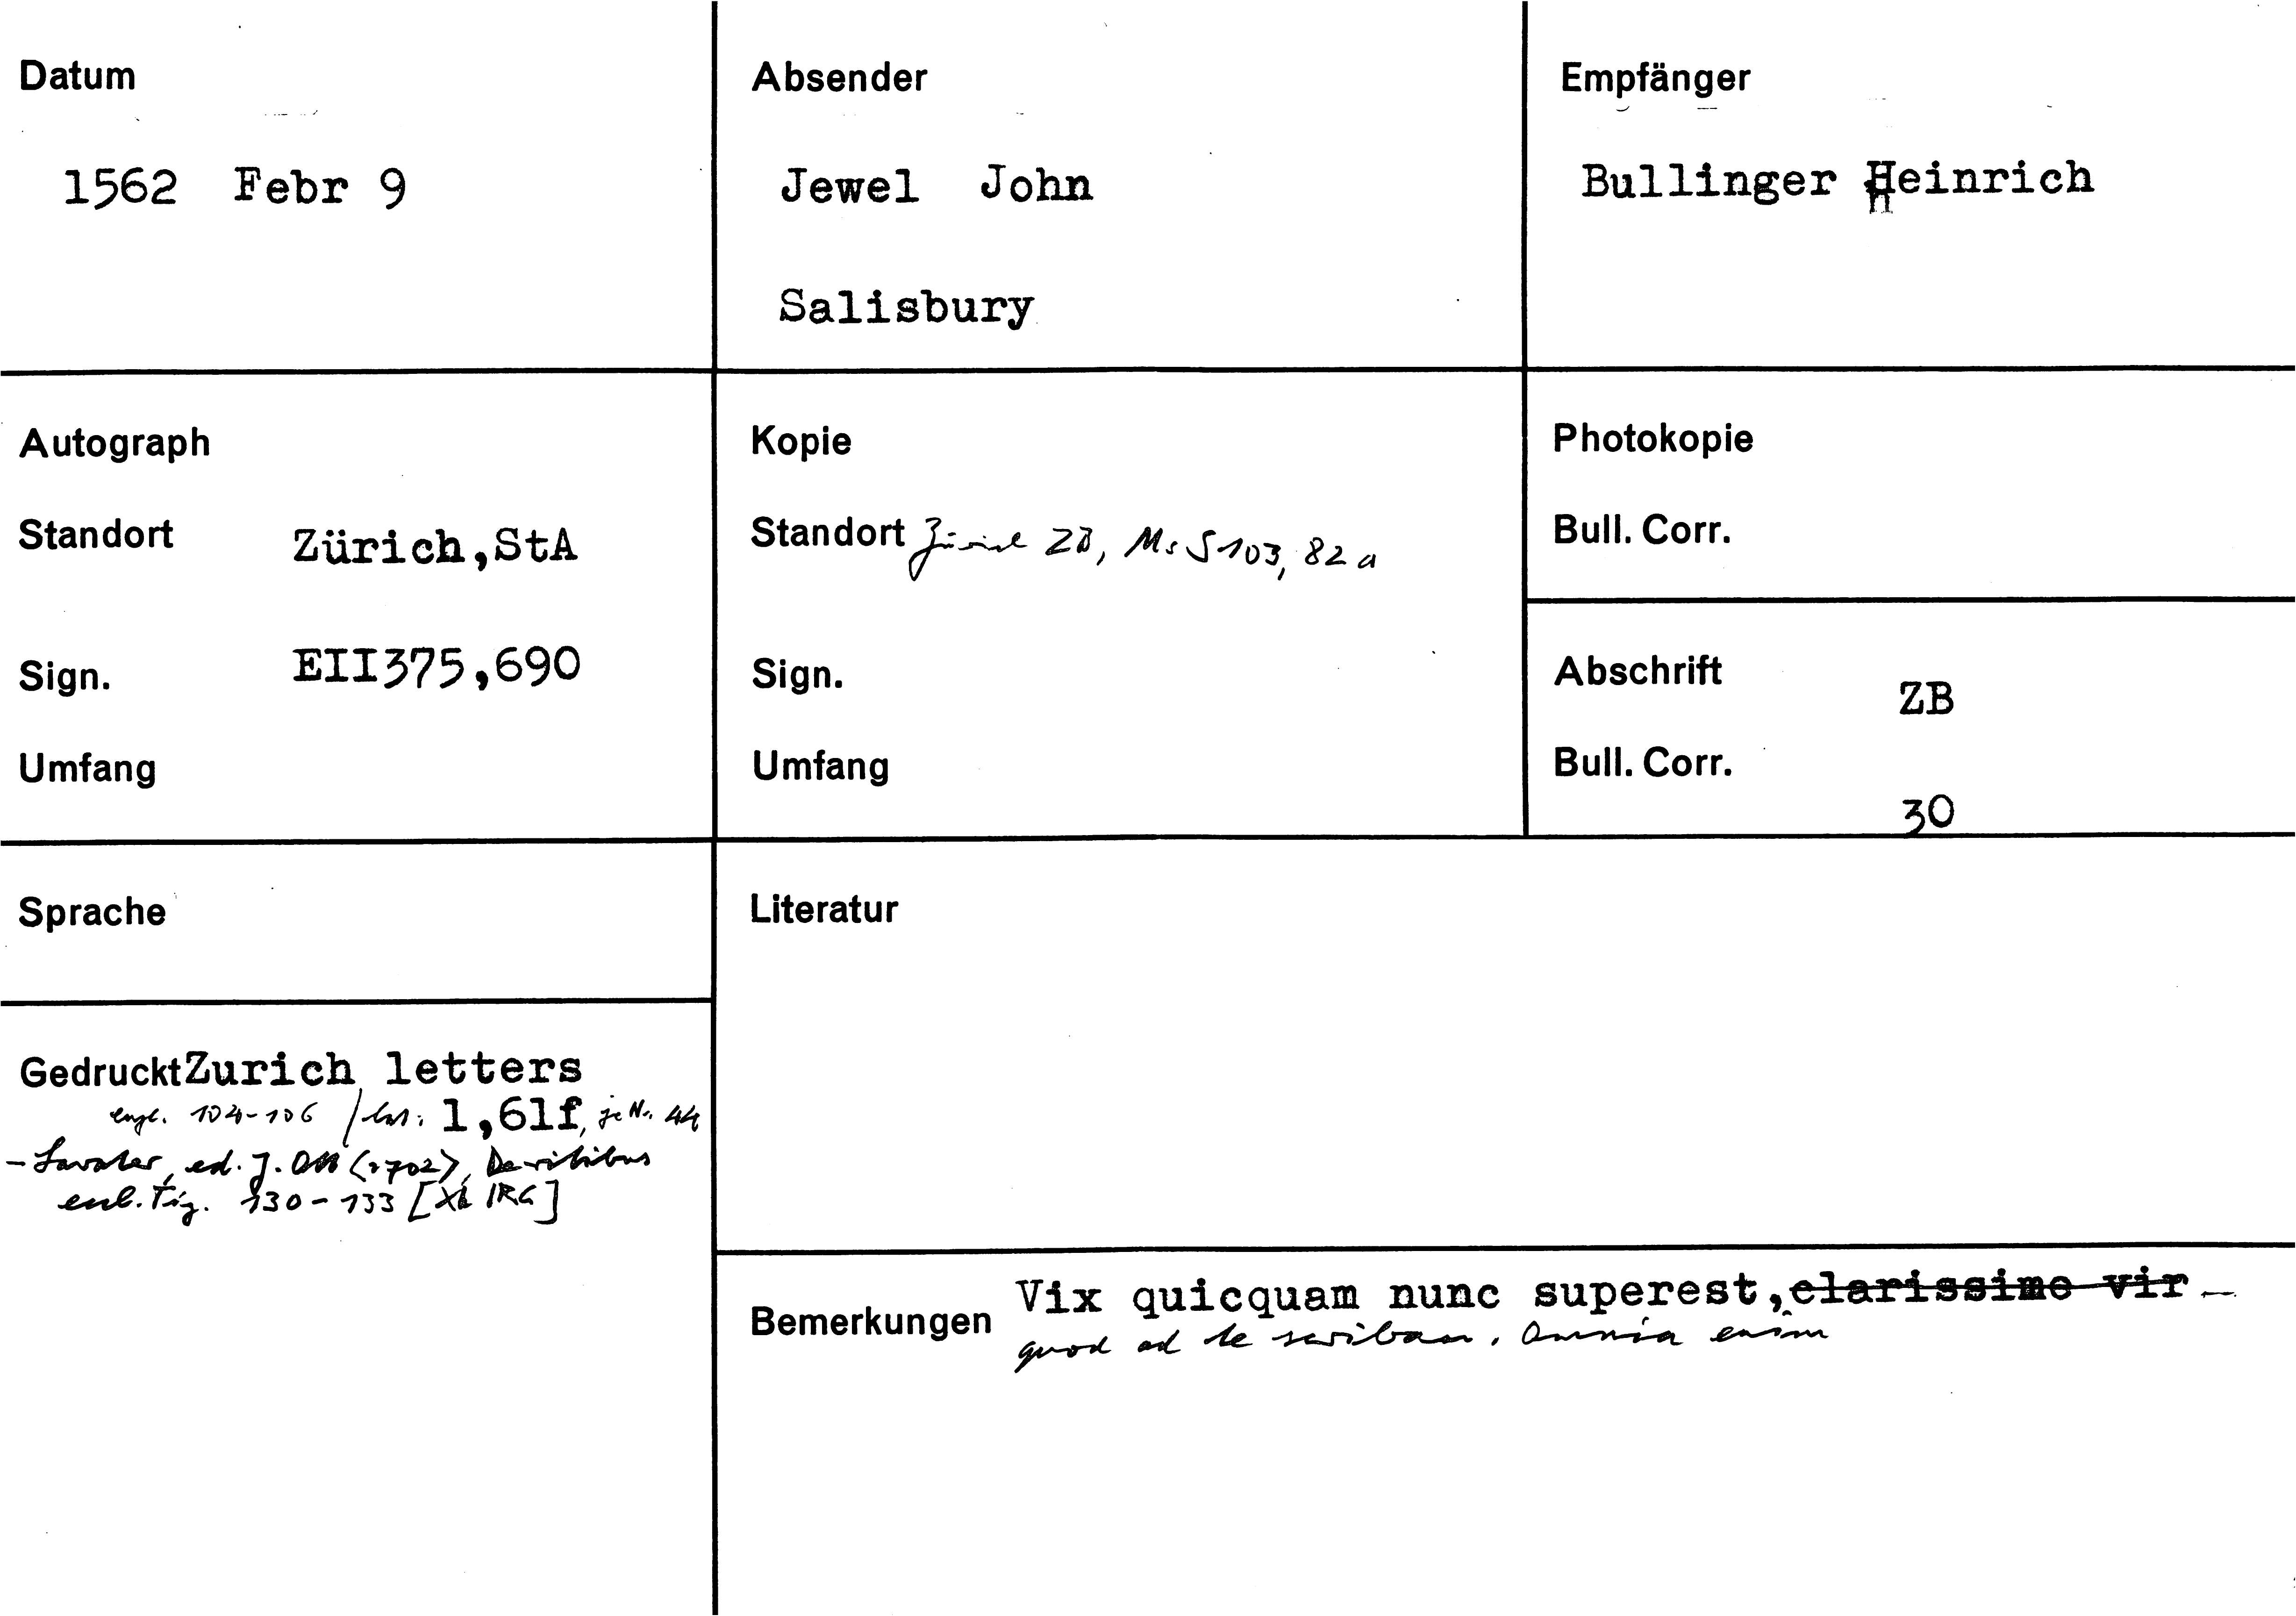 Datum
1562 Febr 9
Absender
Jewel John
Salisbury
Empfänger
Bullinger Heinrich
Autograph
Standort Zürich,StA
Sign. EII375,690
Umfang
Kopie
Standort Zürich ZB, Ms S 103, 82 a
Sign.
Umfang
Photokopie
Bull. Corr.
Abschrift ZB
Bull. Corr.
30
Sprache
Gedruckt Zurich letters
engl. 104-106 / lat: 1,61f, je Nr. 44
- Lavater, ed. J. Ott (1702), De ritibus
eccl. Tig. 130-133 [XL IRG]
Literatur
Bemerkungen Vix quicquam nunc superest, clarissime vir
quod ad te scribam. Omnia enim